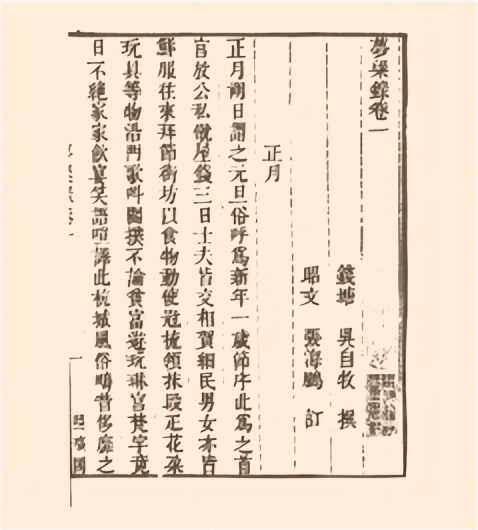 夢粱錄卷一
錢塘 吳自牧 撰
昭文 張海鵬 訂
正月
正月朔日謂之元旦俗呼為新年一歲節序此為之首
官放公私僦屋錢三日士夫皆交相賀細民男女亦皆
鮮服往來拜節街坊以食物動使冠梳領抹段疋花朶
玩具等物沿門歌呌關撲不論貧富遊玩琳宮梵宇竟
日不絕家家飲宴笑語喧譁此杭城風俗疇昔侈靡之